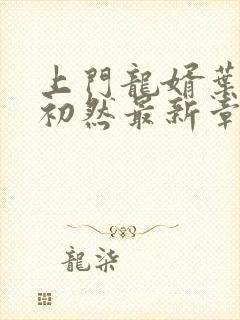 上門龍婿葉
初然最新章
龍柒